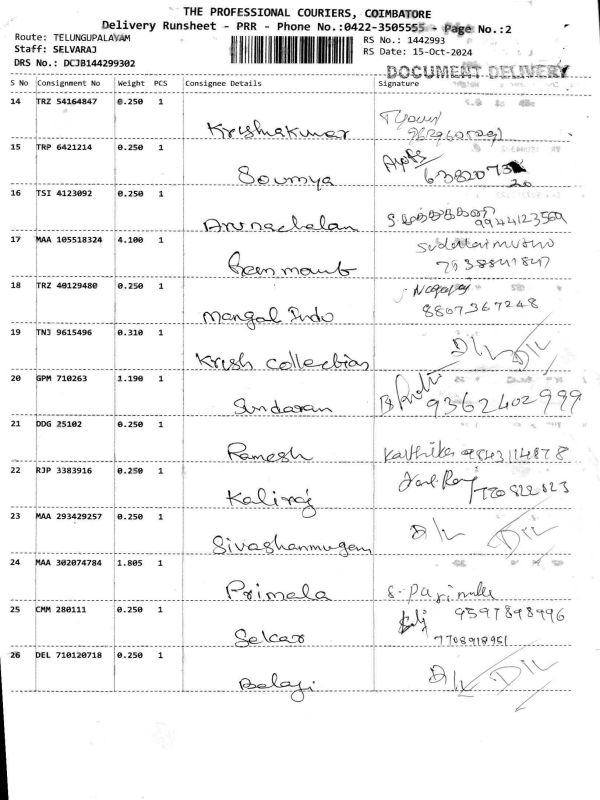 THE PROFESSIONAL COURIERS, COIMBATORE
Delivery Runsheet - PRR - Phone No.:0422-3505555 - Page No.:2
Route: TELUNGUPALAYAM RS No.: 1442993
Staff: SELVARAJ RS Date: 15-Oct-2024
DRS No.: DCJB144299302
DOCUMENT DELIVERY
S No Consignment No Weight PCS Consignee Details Signature
14 TRZ 54164847 0.250 1
Krishnakumar
15 TRP 6421214 0.250 1
Soumya
16 TSI 4123092 0.250 1
Arunachalam 9944123569
17 MAA 105518324 4.100 1
18 TRZ 40129480 0.250 1
Mangal Indo 8807367248
19 TNJ 9615496 0.310 1
Krish Collection D/L D/L
20 GPM 710263 1.190 1
Sundaran 9362402999
21 DDG 25102 0.250 1
Ramesh Karthika
22 RJP 3383916 0.250 1
Kaliraj
23 MAA 293429257 0.250 1
Sivashanmugam D/L D/L
24 MAA 302074784 1.805 1
Primala
25 CMM 280111 0.250 1 9597898996
Sekar 7708918951
26 DEL 710120718 0.250 1
Balaji D/L D/L